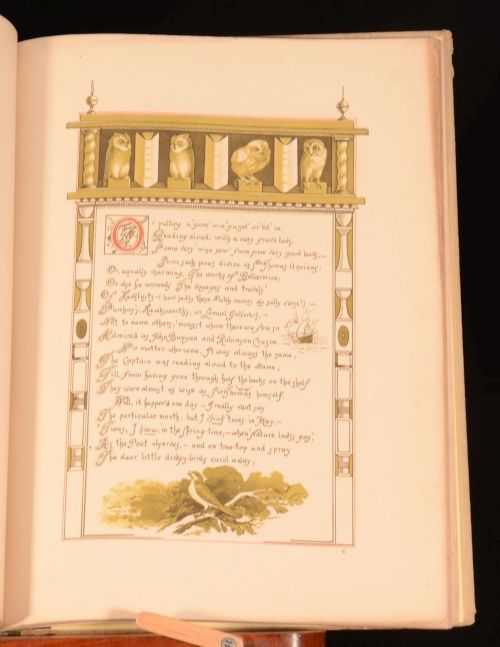 Or pulling a "gore" or a "gusset" or "bit" in,
Reading aloud, with a very grave look,
Some very "wise saw" from some very good book,—
Some such pious divine as St. Thomas Aquinas:
Or, equally charming, The works of Bellarmine;
Or else he unravels The voyages and travels
Of Hackluytz — how sadly these Dutch names do sully verse! —
Purchas's, Hawksworth's, or Lemuel Gulliver's,—
Not to name others, 'mongst whom there are few so
Admired as John Bunyan and Robinson Crusoe.
No matter who came, It was always the same,
The Captain was reading aloud to the Dame,
Till, from having gone through half the books on the shelf
They were almost as wise as Sir Thomas himself.
Well, it happen'd one day — I really can't say
The particular month; but I think 'twas in May,—
'Twas, I know, in the Spring-time,—when "Nature looks gay,"
As the Poet observes,— and on tree-top and spray
The dear little dickey-birds carol away;
6